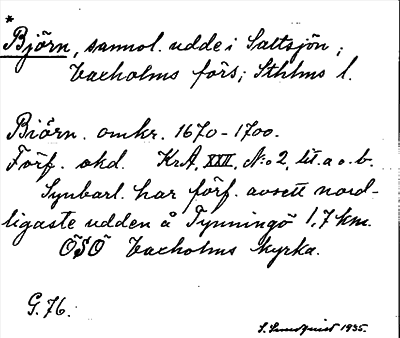 *
Björn, sannol. udde i Saltsjön;
Vaxholms förs; Sthlms l.
Biörn. omkr. 1670-1700.
Förf. okd. KrA, XXII, N:o 2, lit. a o. b.
Synbarl. har förf. avsett nord-
ligaste udden å Tynningö 1,7 km.
ÖSÖ Vaxholms kyrka.
G. 76.
S. Lundquist 1935.